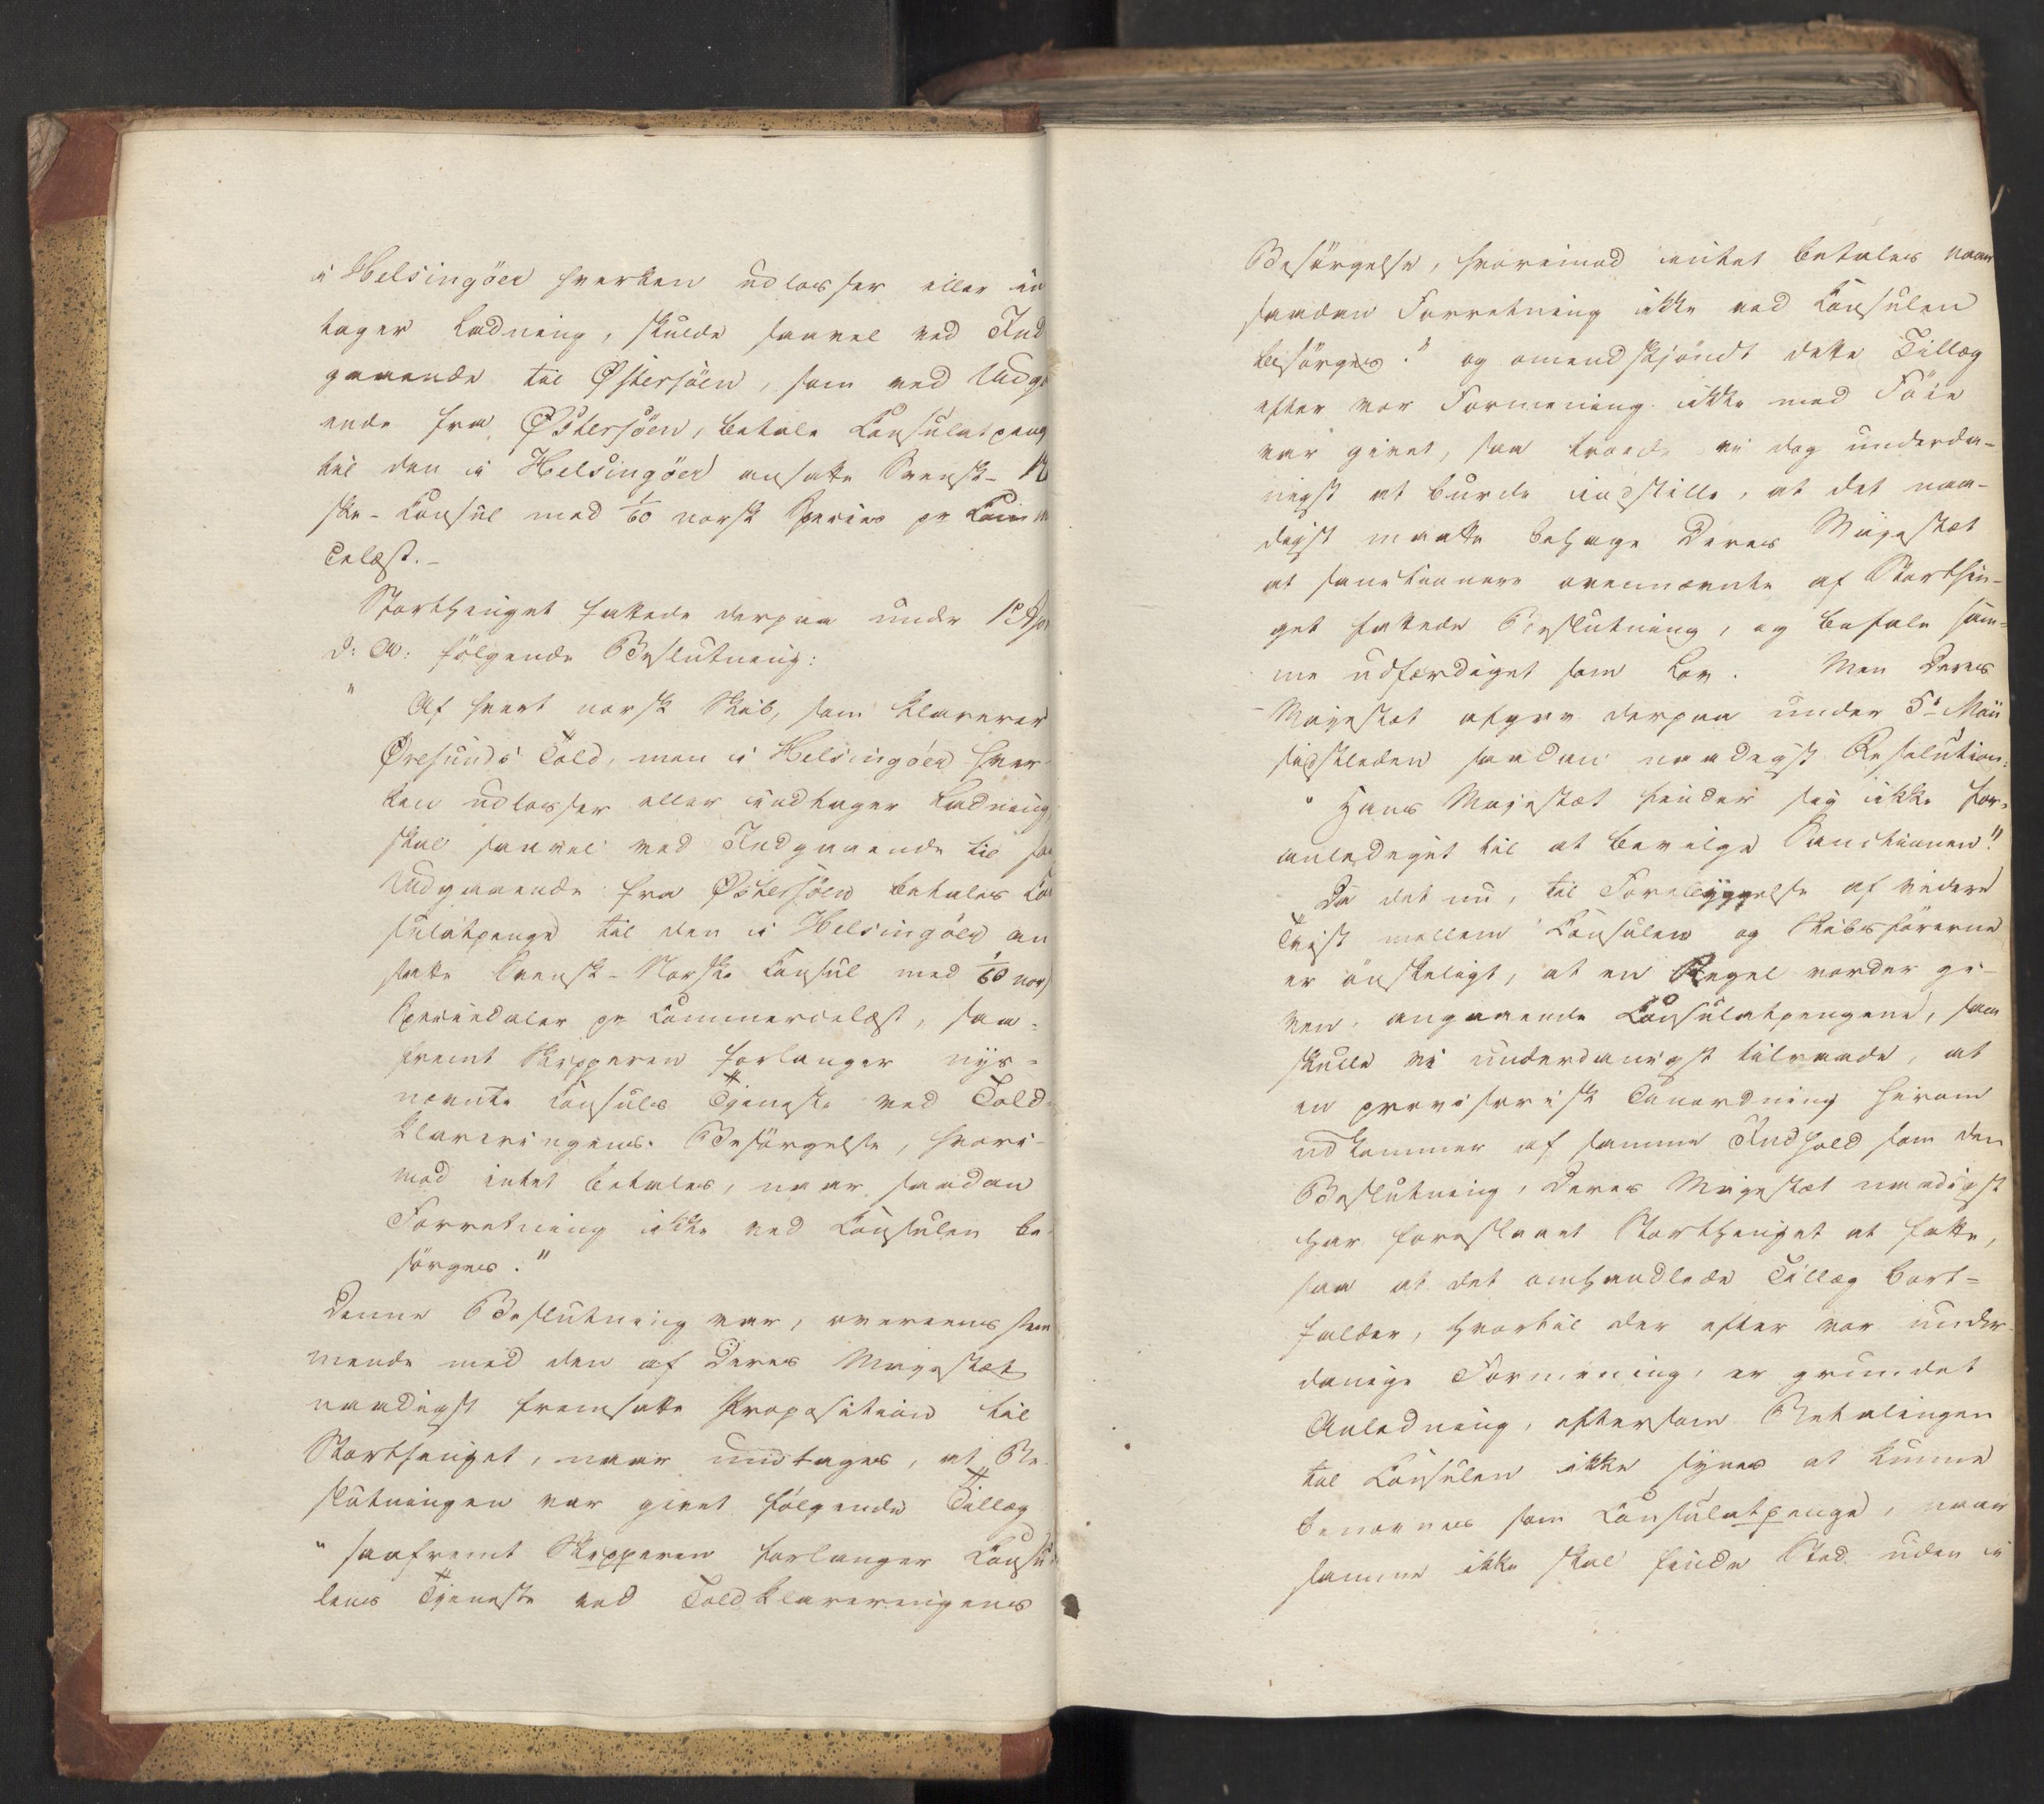 i Helsingöer hverken udlosser eller in
tager Ladning, skulde saavel ved Ind
gaaende til Østersöen, som ved Udga
ende fra Østersöen, betale Consulatpeng
til den i Helsingöer ansatte Svensk-No
ske-Consul med 1/60 norsk Species pr Com
celæst.-
Storthinget fattede derpaa under
d: A: følgende Beslutning:
" Af hvert norsk Skib, som klarerer
Øresunds Told, men i Helsingöer hver
ken udlosser eller indtager Ladning,
skal saavel ved Indgaaende til so
Udgaaende fra Østersöen betales Co
sulatpenge til den i Helsingöer an
satte Svensk-Norske Consul med 1/60 nor
Speciedaler pr Commercelæst, saa-
fremt Skipperen forlanger nys-
nævnte Consuls Tjeneste ved Told-
klareringens Besörgelse, hvori-
mod intet betales, naar saadan
Forretning ikke ved Consulen be-
sörges."
Denne Beslutning var, overeensstem
mende med den af Deres Majestæt
naadigst fremsatte Proposition til
Storthinget, naar undtages, at Be-
slutningen var givet følgende Tillæg
"saafremt Skipperen forlanger Consu-
lens Tjeneste ved Toldklareringens
Besörgelse, hvorimod intet betales naar
saadan Forretning ikke ved Consulen
besörges." og omendskjöndt dette Tillæg
efter vor Formening ikke med Föie
var givet, saa troede vi dog underda-
nigst at burde indstille, at det naa-
digst maatte behage Deres Majestæt
at sanctionere ovennævnte af Storthin-
get fattede Beslutning, og befale sam-
me udfærdiget som Lov. Men Deres
Majestæt afgav derpaa under 5te Maii
sidstleden saadan naadigst Resolution:
"Hans Majestæt finder sig ikke for-
anlediget til at bevilge Sanctionen."
Da det nu, til Forebyggelse af videre
Tvist mellem Consulen og Skibsförerne
er önskeligt, at en Regel vorder gi-
ven angaaende Consulatpengene, saa
skulle vi underdanigst tilraade, at
en provisorisk Anordning herom
udkommer af samme Indhold som den
Beslutning, Deres Majestæt naadigst
har foreslaaet Storthinget at fatte,
saa at det omhandlede Tillæg bort-
falder, hvortil der efter vor under-
danige Formening, er grundet
Anledning, eftersom Betalingen
til Consulen ikke synes at kunne
benævnes som Consulatpenge, naar
samme ikke skal finde Sted uden i